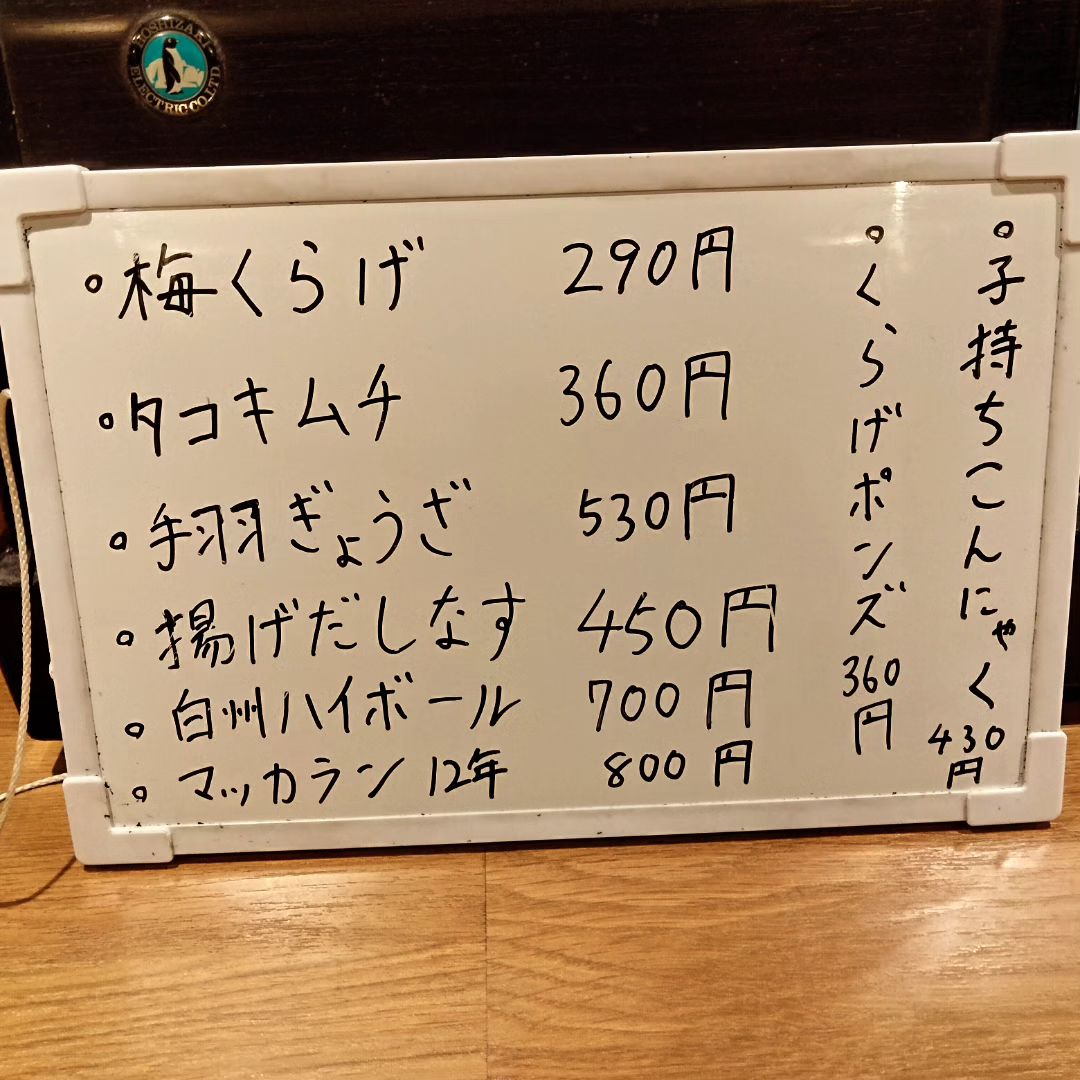 HOSHIZAKI ELECTRIC CO.,LTD.
。梅くらげ 290円
。タコキムチ 360円
。手羽ぎょうざ 530円
。揚げだしなす 450円
。白州ハイボール 700円
。マッカラン12年 800円
。子持ちこんにゃく 430円
。くらげポンズ 360円